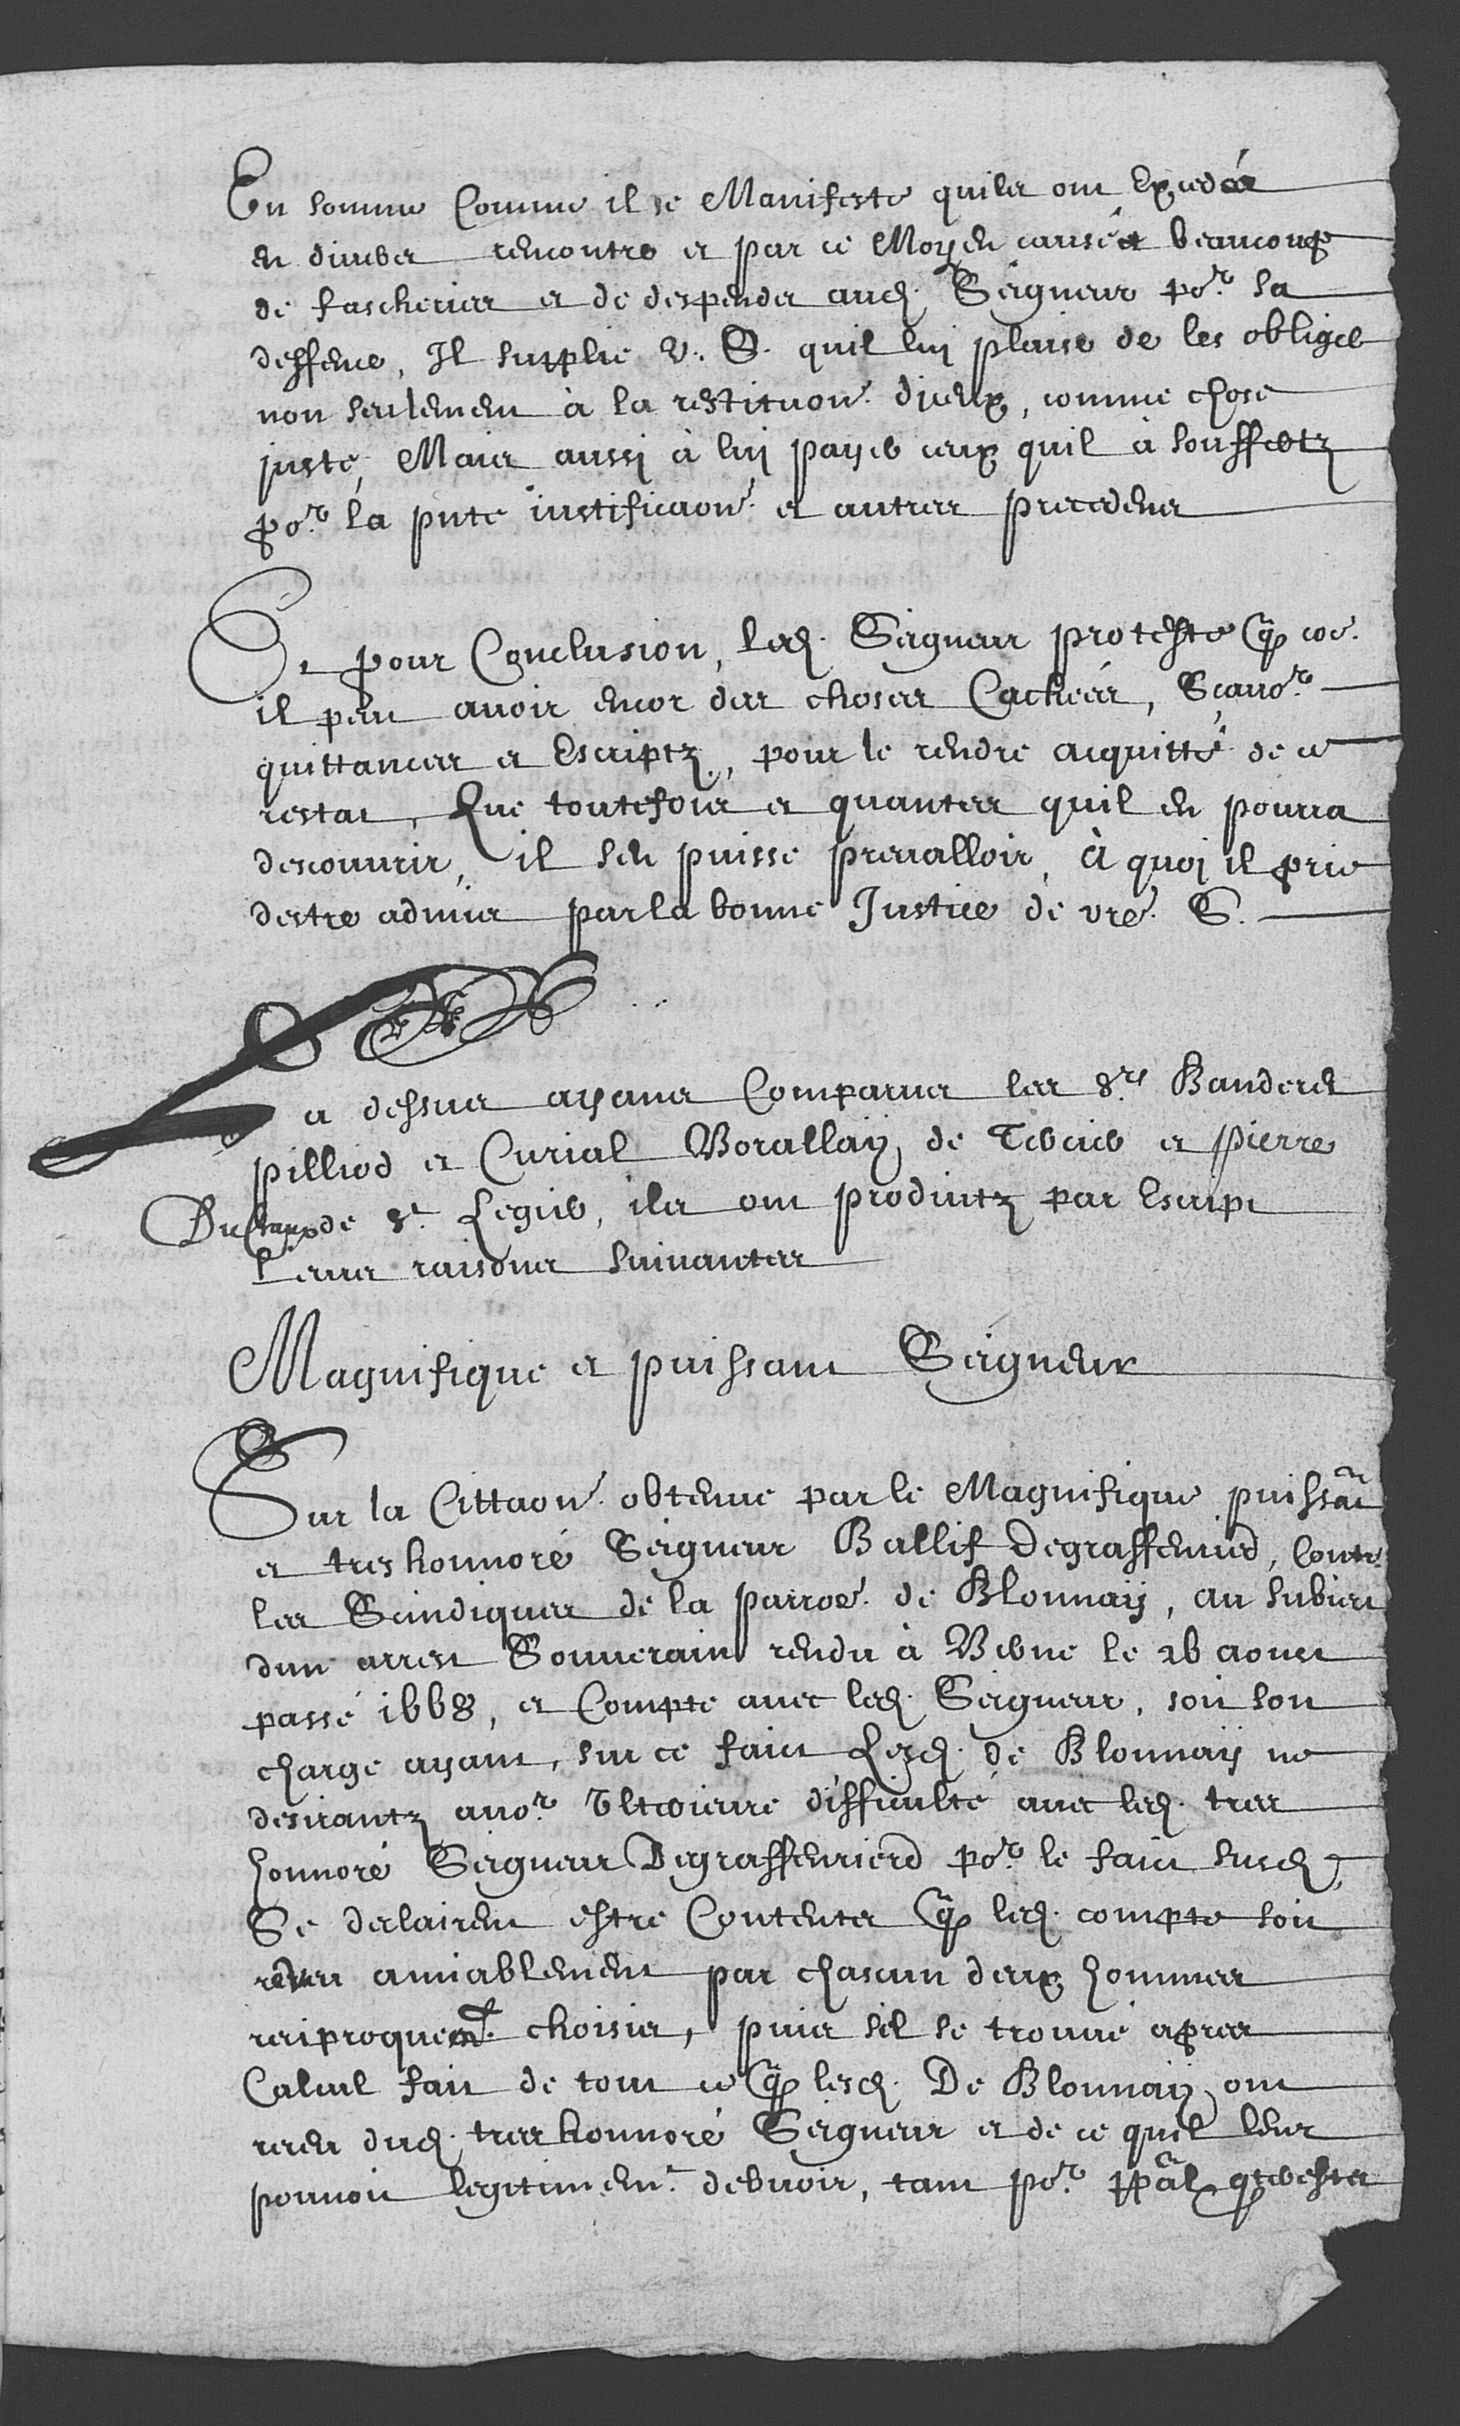 En somme Comme il se Manifeste quils ont Excedéz
en divers rencontre et par ce Moyen causéz beaucoup
de fascheries et de despendes aud. Seigneur por. sa
deffence, Il supplie V. S. quil lui plaise de les obliger
non seulement à la restituon. diceux, comme chose
juste, Mais aussi à lui payer ceux quil à souffertz
por. la pnte justificaon. et autres precedens
Et pour Conclusion, led. Seigneur proteste que coe.
il peut avoir encor des choses Cachées, Scavor.
quittances et Escriptz, pour le rendre acquitté de ce
restat, Que toutefois et quantes quil en pourra
descouvrir, il sen puisse prevalloir, à quoi il prie
destre admis par la bonne Justice de vre. S.
La dessus ayans Comparus les Srs Banderet
pilliod et Curial Borallay de Tercier et Pierre
Ducraux de St. Legier, ils ont produitz par Escript
leurs raisons suivantes
Magnifique et puissant Seigneur
Sur la Cittaon. obtenue par le Magnifique puissât
et tres honnoré Seigneur Ballif Degraffenried, Contre
les Scindiques de la parroe. de Blonnay, au subiect
dun arrest Souverain rendu à Berne le 26 aoust
passé 1668, et Compte avec led. Seigneur, soit son
charge ayant, sur ce faict Lesd. de Blonnay ne
desirantz avor. Ulterieure difficulté avec led. tres
honnoré Seigneur Degraffenrierd por. le faict susd.
Se declairent estre Contents que led. compte soit
reveu amiablement par chascun deux hommes
reciproquemt. choisis, puis sil se trouve apres
Calcul fait de tout ce que lesd. De Blonnay ont
receu dud. tres honnoré Seigneur et de ce quil leur
pouvoit legitimemt. debvoir, tant por. ppâl qterests